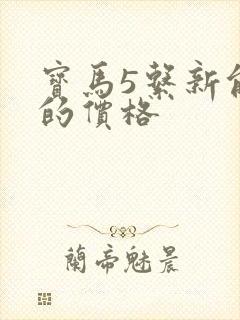 寶馬5繫新
的價格
蘭帝魅晨